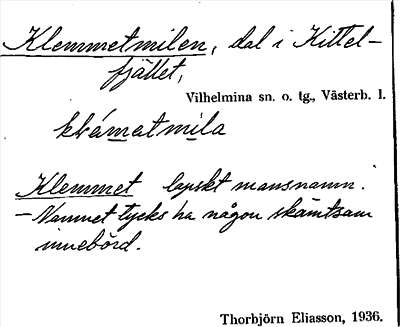 Klemmetmilen, dal i Kittel-
fjället,
Vilhelmina sn. o. tg., Västerb. l.
klémetmila
Klemmet lapskt mansnamn.
– Namnet tycks ha någon skämtsam
innebörd.
Thorbjörn Eliasson, 1936.